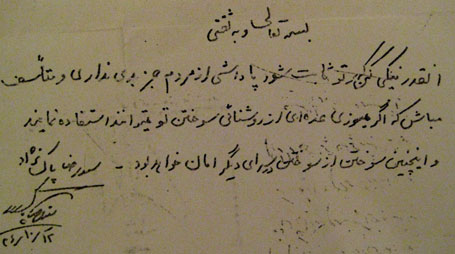 بسمه تعالی و به ثقتی
آنقدر نیکی کن که بر تو ثابت شود پاداشی از مردم جز بدی نداری و متأسف
مباش که اگر میسوزی عده‌ای از روشنائی سوختن تو میتوانند استفاده نمایند
و اینچنین سوختن از سوختن در سرای دیگر امان خواهد بود - سیدرضا پاک نژاد